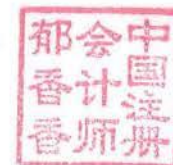 中国注册
会计师
郁香香